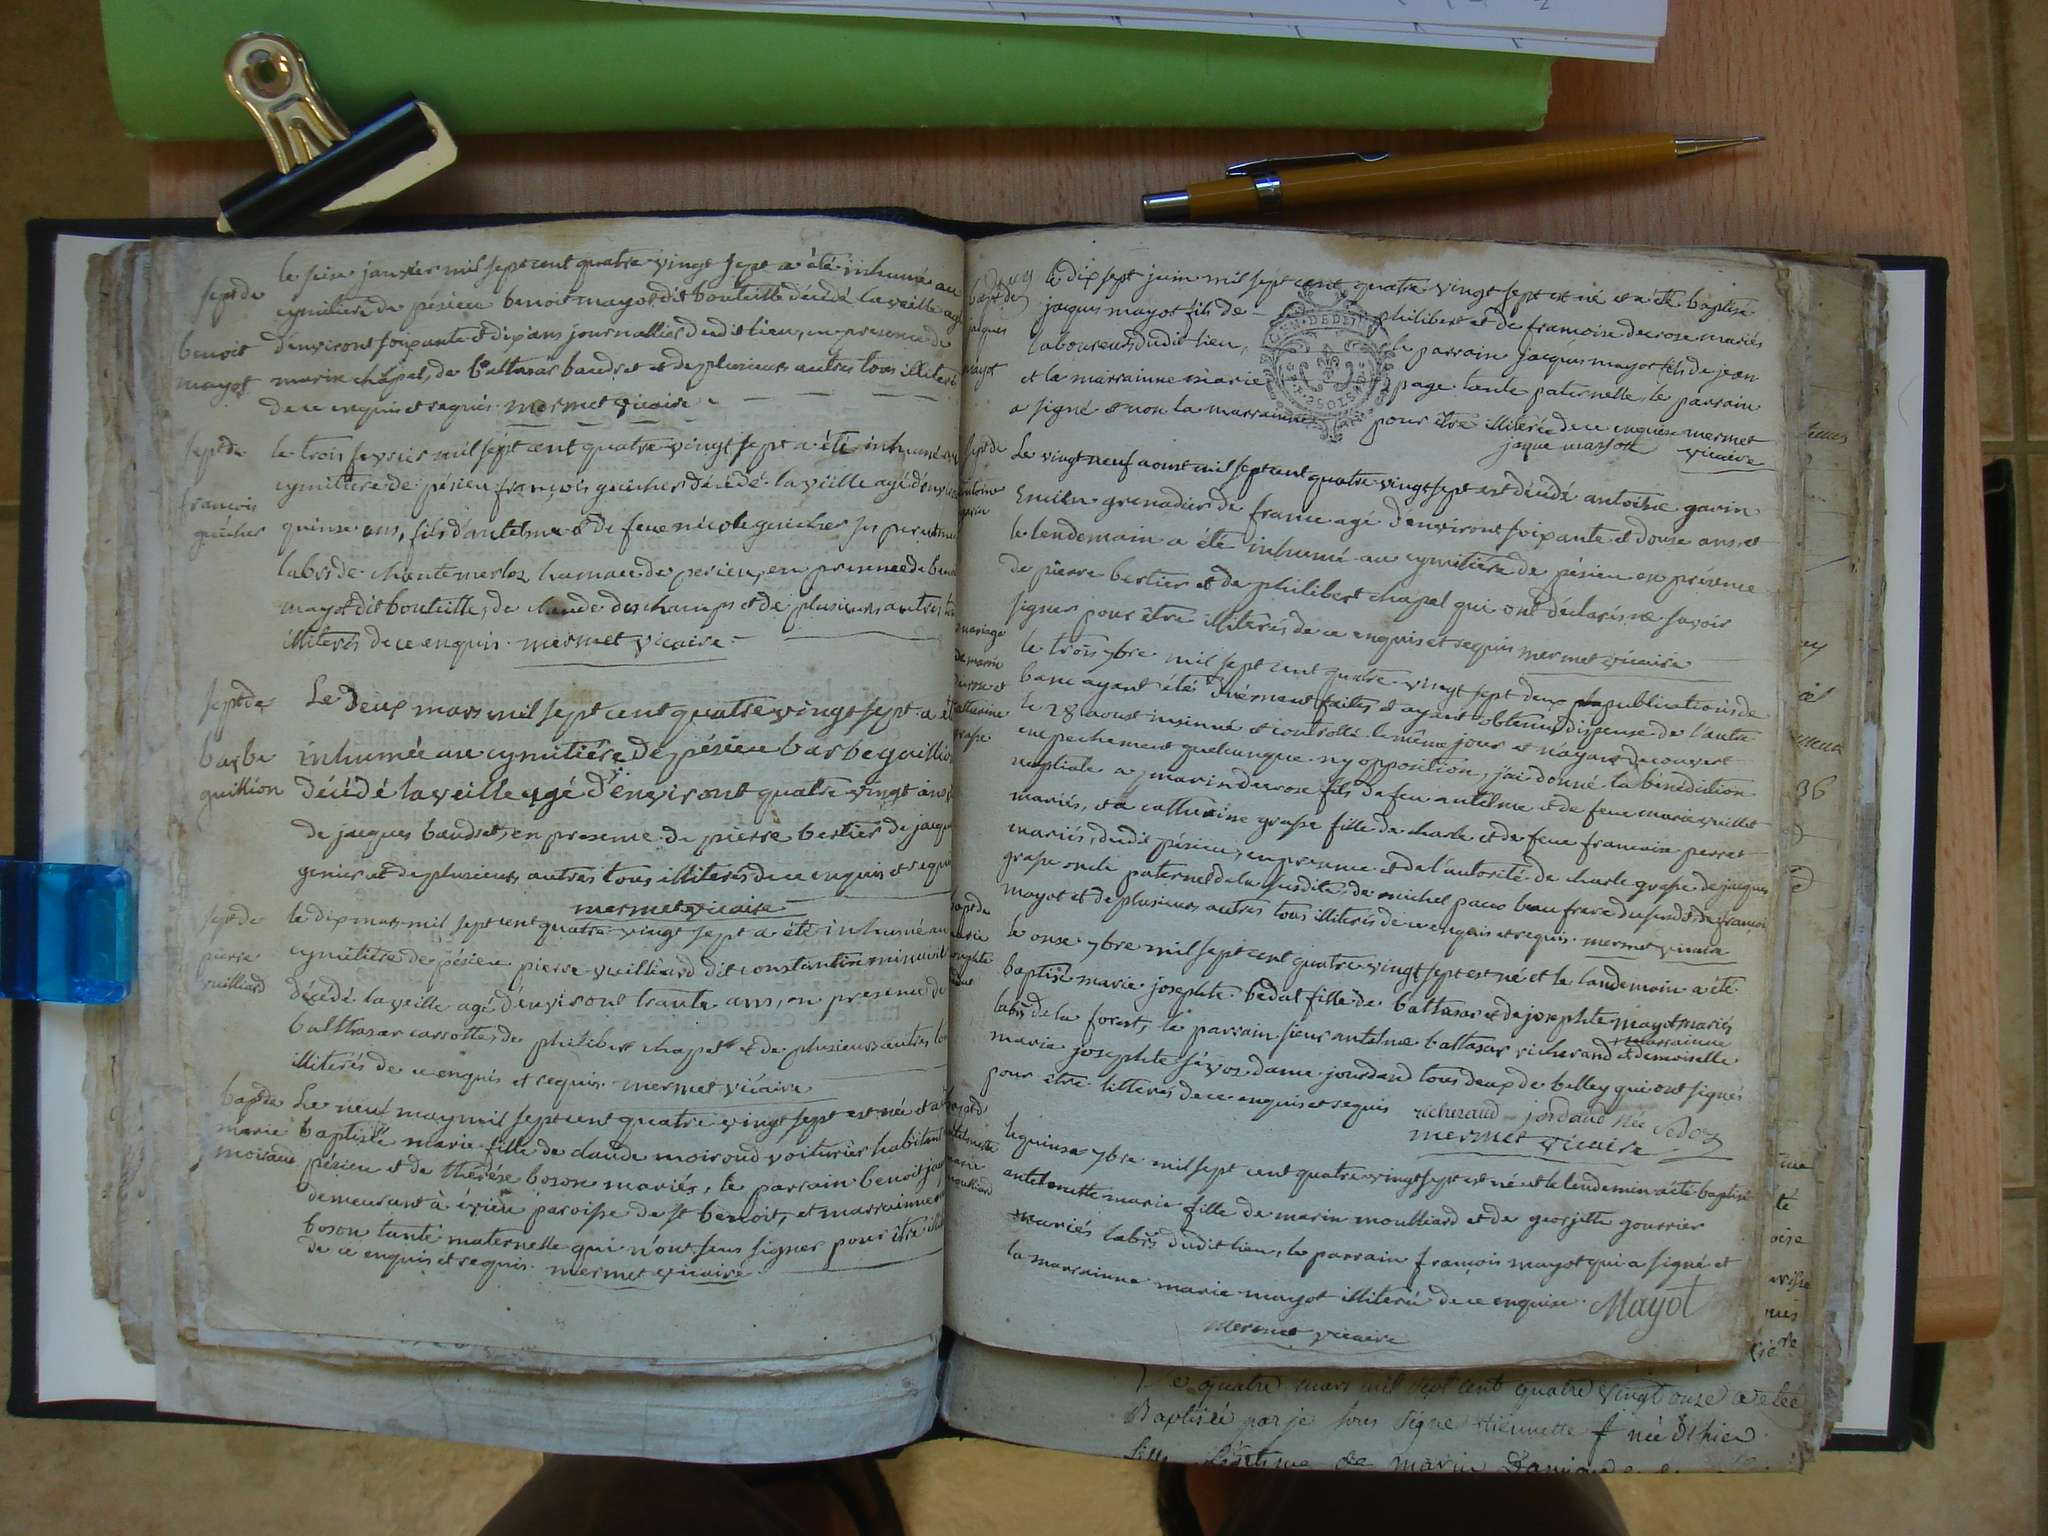 septde
benoit
mayot
le seize janvier mil sept cent quatre vingt sept a été inhumé au
cymitiere de pésieu benoit mayot dit bouteille décédé la veille agé
d'environt soixante et dix ans journallier dudit lieu, en presence de
marin chapel, de baltasar baudret et de plusieurs autres tous illiterés
de ce enquis et requis. mermet vicaire
septde
francois
guicher
le trois fevrier mil sept cent quatre vingt sept a été inhumé au
cymitiere de pésieu françois guicher décédé la veille agé d'environt
quinse ans, fils d'antelme et de feue nicole guicher
labrs de chantemerle, hameau de pesieu, en presence de benoit
mayot dit bouteille, de claude deschamps et de plusieurs autres tous
illiterés de ce enquis. mermet vicaire
septde
barbe
guillion
Le Deux mars mil sept cent quatre vingt sept a été
inhumée au cymitiére de pésieu barbe guillion
décédé la veille agé d'environt quatre vingt ans
de jacques baudret, en presence de pierre bertier de jacques
genier et de plusieurs autres tous illiterés de ce enquis et requis
mermet vicaire
septde
pierre
vuilliard
le dix mars mil sept cent quatre vingt sept a été inhumé au
cymitiere de pésieu pierre vuilliard dit constantin
décédé la veille agé d'environt trante ans, en presence de
balthasar carrotte, de philibert chapel et de plusieurs autres tous
illiterés de ce enquis et requis. mermet vicaire
baptde
marie
moiroud
Le neuf may mil sept cent quatre vingt sept est née et a été
baptisée marie fille de claude moiroud voiturier habitant
pésieu et de thérése boson mariés, le parrain benoit
demeurant à évieu paroisse de st benoit, et marrainne
boson tante maternelle qui n'ont seus signer pour être illiterés
de ce enquis et requis. mermet vicaire
baptde
jacques
mayot
le dix sept juin mil sept cent quatre vingt sept est né et a été baptisé
jacques mayot fils de philibert et de francoise decrose mariés
laboureurs dudit lieu, le parrain jacques mayot fils de jean
et la marrainne marie page tante paternelle, le parrain
a signé et non la marrainne pour être illiterée de ce enquise mermet
jaque mayot vicaire
septde
antoine
gavin
Le vingt neuf aoust mil sept cent quatre vingt sept est décédé antoine gavin
encien grenadier de france agé d'environt soixante et douse ans et
le lendemain a été inhumé au cymitiére de pésieu en présence
de pierre bertier et de philibert chapel qui ont déclarés ne savoir
signer pour être illiterés de ce enquis et requis mermet vicaire
mariage
de marin
decrose et
catherine
grasse
le trois 7bre mil sept cent quatre vingt sept deux publications de
banc ayant été duement faites et ayant obtenus dispense de l'autre
le 28 aoust insinué et controllé le même jour et n'ayant découvert
empechement quelconque ny opposition, j'ai donné la bénédiction
nuptiale a marin decrose fils de feu antelme et de feue marie vuillet
mariés, et a catherine grasse fille de charle et de feue francoise perret
mariés, dudit pésieu, en presence et de l'autorité de charle grasse de jacques
grasse oncle paternel de la susdite, de michel pacco beau frere du susdit, de françois
mayot et de plusieurs autres tous illiterés de ce enquis et requis. mermet vicaire
baptde
marie
josephte
bedat
le onse 7bre mil sept cent quatre vingt sept est né et le landemain a été
baptisé marie josephte bedat fille de baltasar et de josephte mayot mariés
labrs de la forest, le parrain sieur antelme baltasar richerand et demoiselle
marrainne
marie josephte sévoz dame jourdand tous deux de belley qui ont signés
pour être litterés de ce enquis et requis richerand jordand née Sevoz
mermet vicaire
baptde
antelmette
marie
moulliard
le quinse 7bre mil sept cent quatre vingt sept est né et le lendemin a été baptisé
antelmette marie fille de marin moulliard et de georjette gourrier
mariés labrs dudit lieu, le parrain françois mayot qui a signé et
la marrainne marie mayot illiterée de ce enquise. Mayot
mermet vicaire
e quatre mars mil sept cent quatre vingt onze a été
Baptisée par je sous signé Etiennette née d'hier
fille légitime de marin